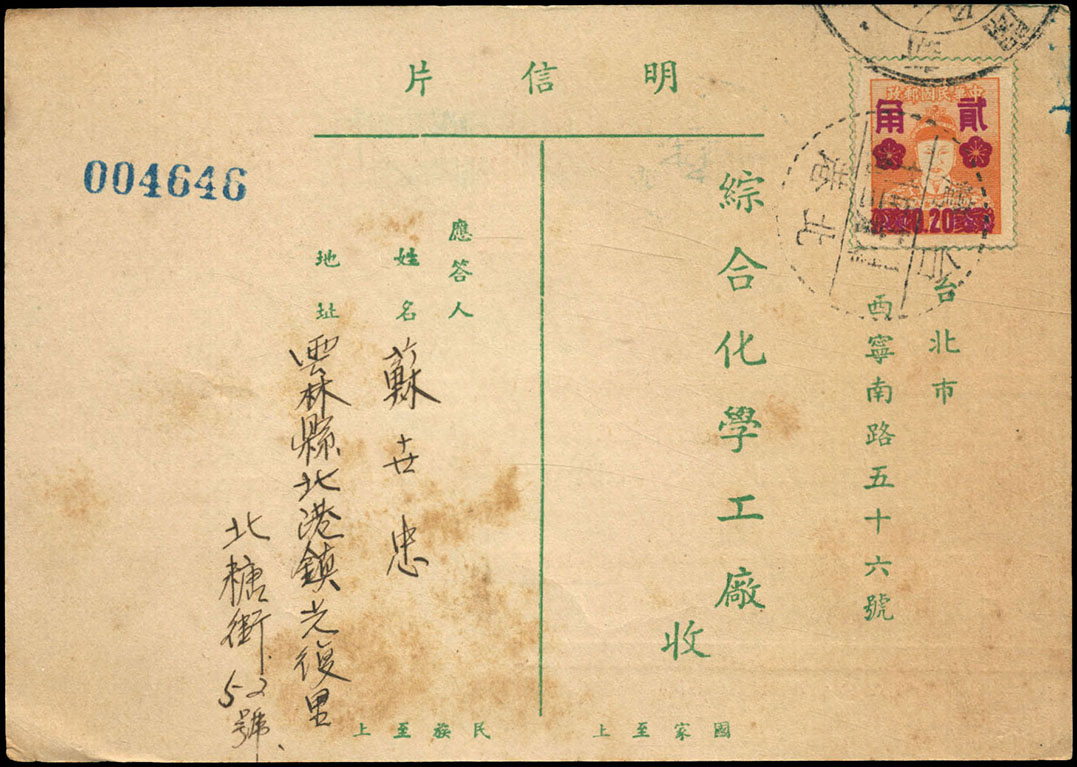 明信片
中華民國郵政
貳角
0.20
台北市
西寧南路五十六號
綜合化學工廠
收
國家至上
應答人
姓名 蘇世忠
地址 雲林縣北港鎮光復里
北糖街52號
民族至上
004646